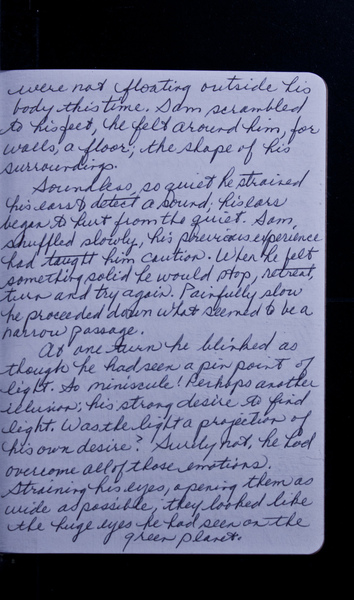 were not floating outside his
body this time. Sam scrambled
to his feet, he felt around him, for
walls, a floor; the shape of his
surroundings.
Soundless, so quiet he strained
his ears to detect a sound; his ears
began to hurt from the quiet. Sam
shuffled slowly, his previous experience
had taught him caution. When he felt
something solid he would stop, retreat,
turn and try again. Painfully slow
he proceeded down what seemed to be a
narrow passage.
At one turn he blinked as
though he had seen a pin point of
light. So miniscule! Perhaps another
illusion; his strong desire to find
light. Was the light a projection of
his own desire? Surely not, he had
overcome all of those emotions.
Straining his eyes, opening them as
wide as possible, they looked like
the huge eyes he had seen on the
green planet.